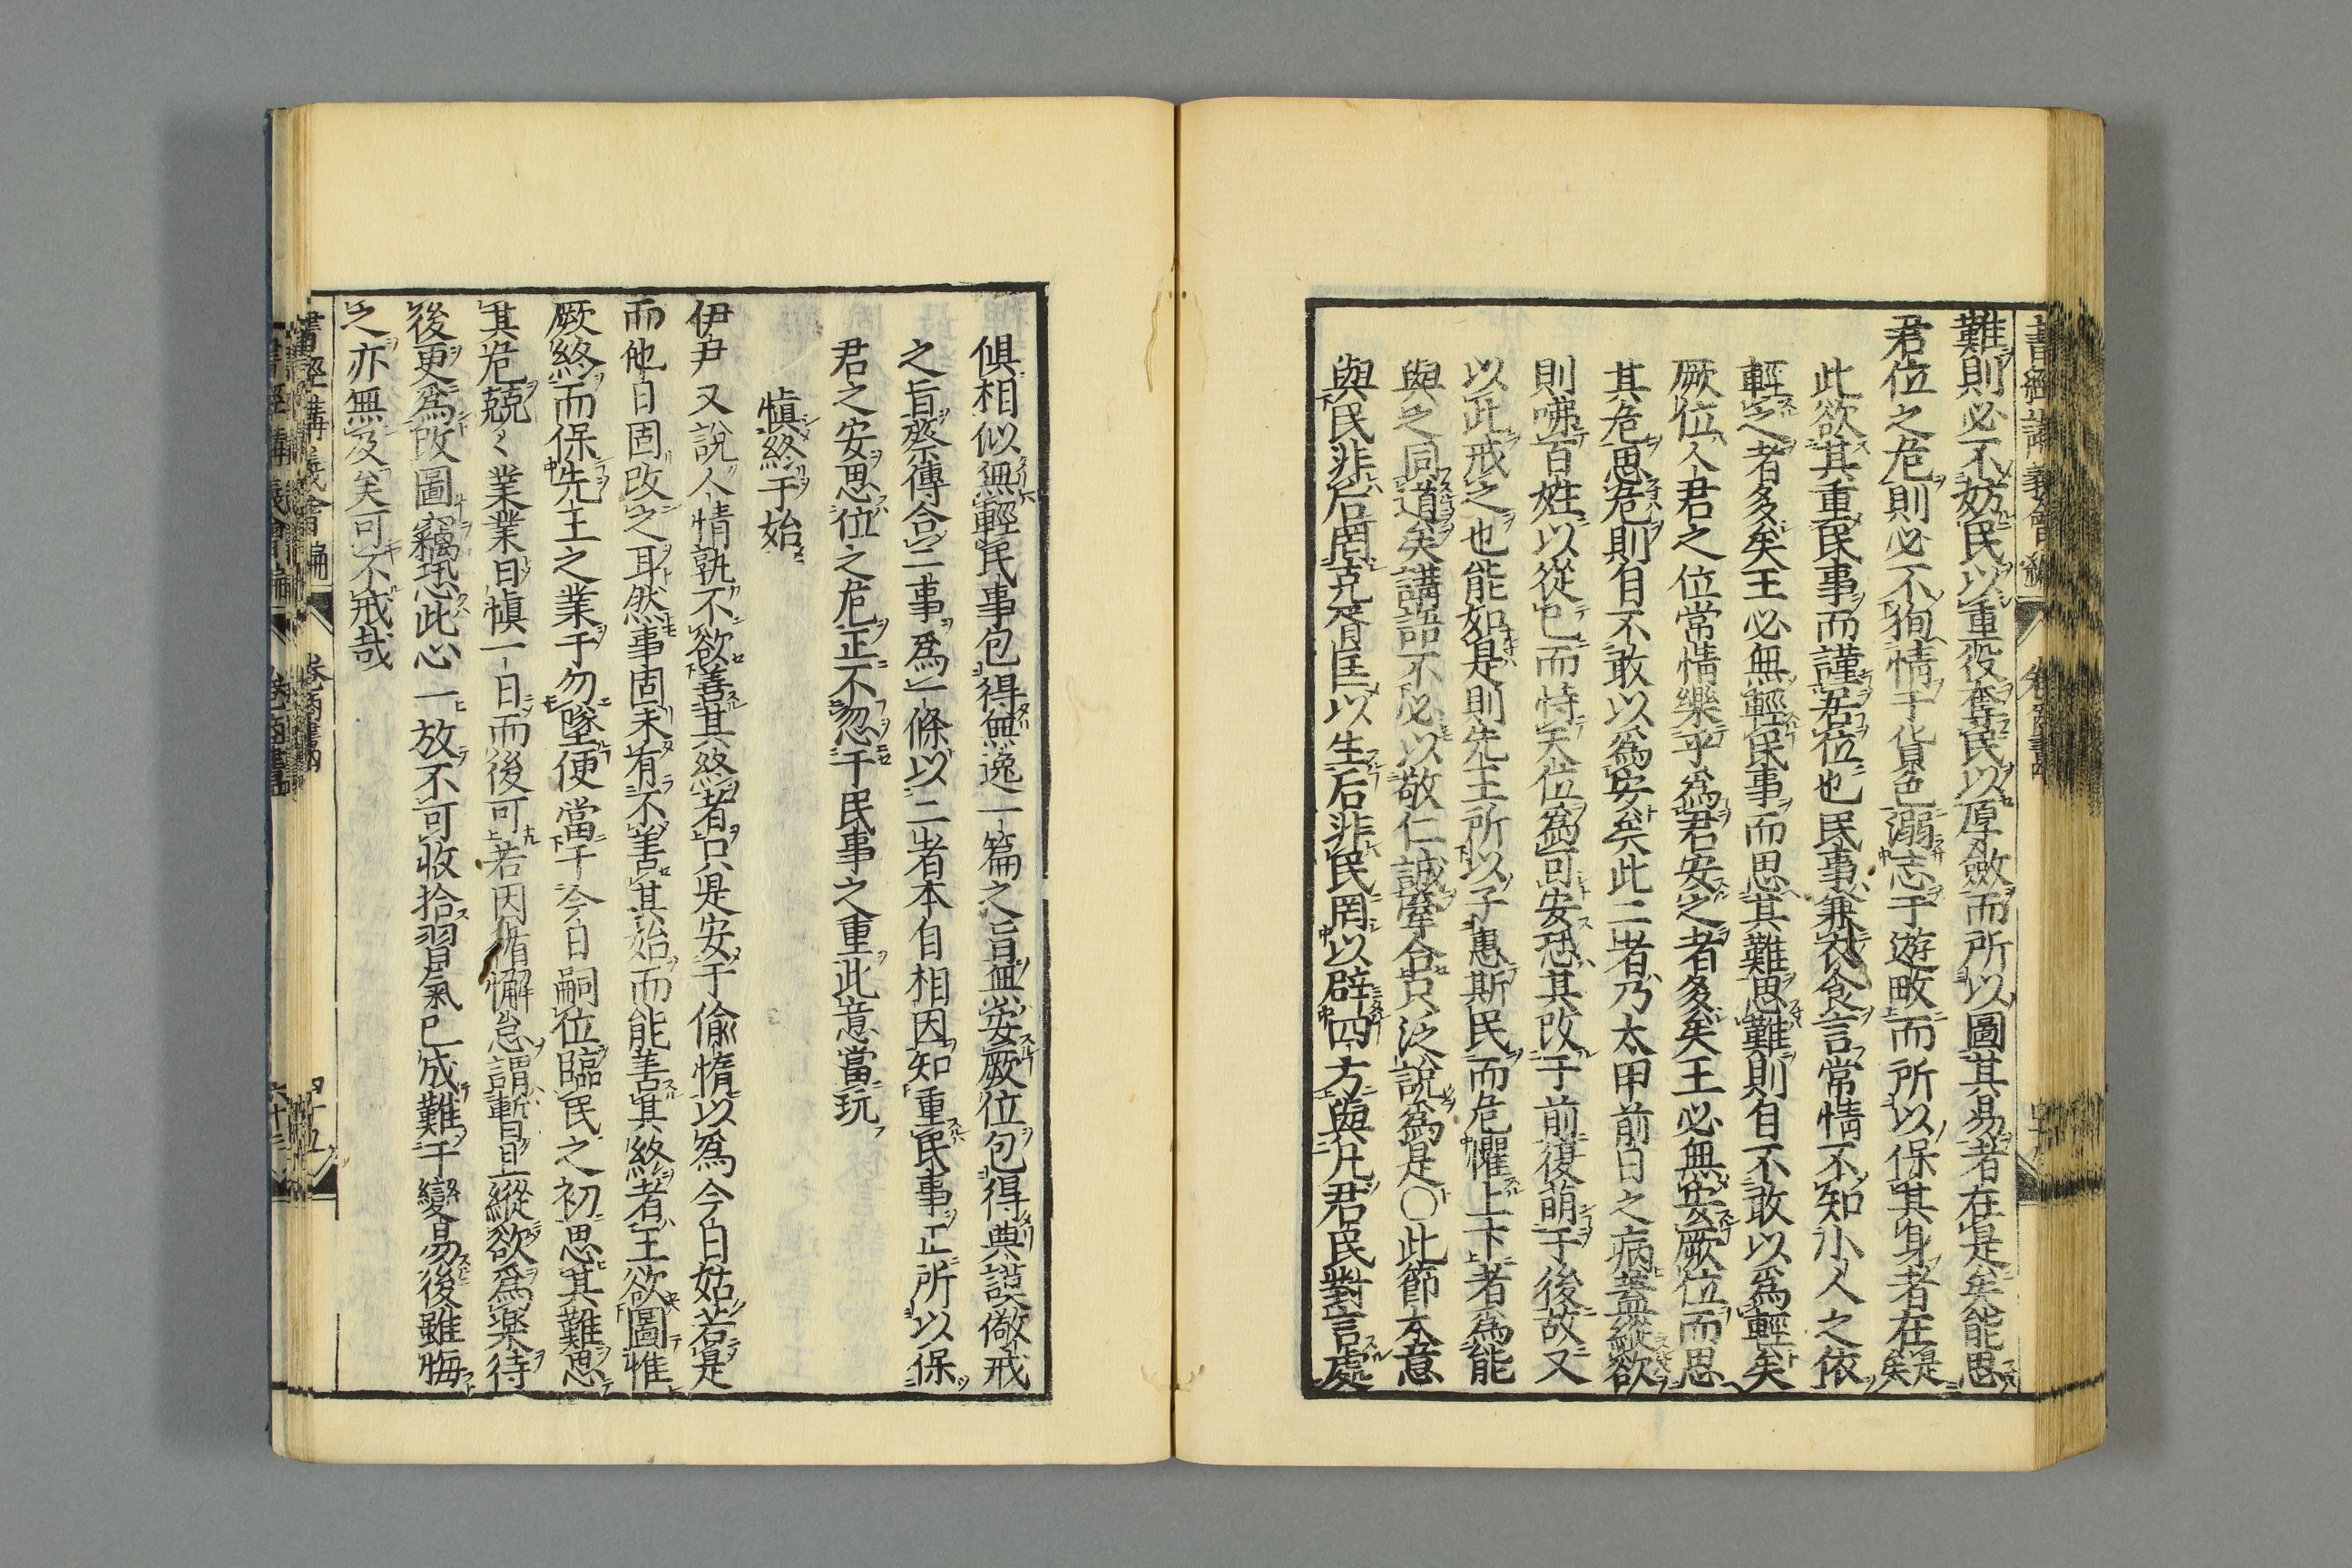 難則必不妨民以重役奪民以厚斂而所以圖其易者在是矣能思
君位之危則必不狥情于貨色溺志于遊畋而所以保其身者在是矣
此欲其重民事而謹君位也民事兼衣食言常情不知小人之依
輕之者多矣王必無輕民事而思其難思難則自不敢以爲輕矣
厥位人君之位常情樂乎爲君安之者多矣王必無安厥位而思
其危思危則自不敢以爲安矣此二者乃太甲前日之病蓋縱欲
則咈百姓以從已而恃天位爲可安恐其改于前復萌于後故又
以此戒之也能如是則先王所以子惠斯民而危懼上下者爲能
與之同道矣講語不必以敬仁誠牽合只泛說爲是〇此節本意
與民非后罔克胥匡以生后非民罔以辟四方與凡君民對言處
俱相似無輕民事包得無逸一篇之旨無安厥位包得典謨儆戒
之旨蔡傳合二事爲一條以二者本自相因知重民事正所以保
君之安思位之危正不忽于民事之重此意當玩
愼終于始
伊尹又說人情孰不欲善其終者只是安于偷惰以爲今日姑若是
而他日固改之耳然事固未有不善其始而能善其終者王欲圖惟
厥終而保先王之業于勿墜便當于今日嗣位臨民之初思其難思
其危兢〻業業日愼一日而後可若因循懈怠謂暫且縱欲爲樂待
後更爲改圖竊恐此心一放不可收拾習氣已成難于變易後雖悔
之亦無及矣可不戒哉
書經講義會編　卷商書　四十五